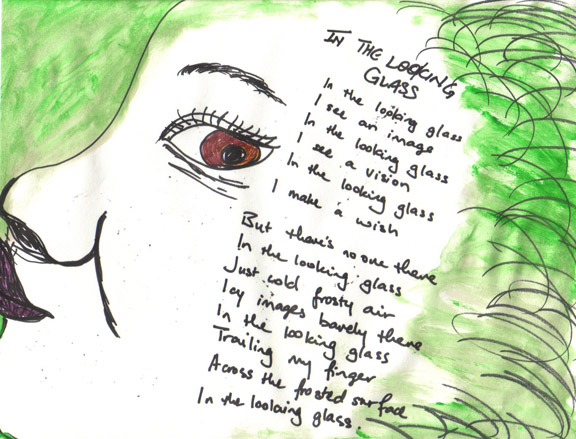 IN THE LOOKING
GLASS
In the looking glass
I see an image
In the looking glass
I see a vision
In the looking glass
I make a wish
But there's no one there
In the looking glass
Just cold frosty air
Icy images barely there
In the looking glass
Trailing my finger
Across the frosted surface
In the looking glass.